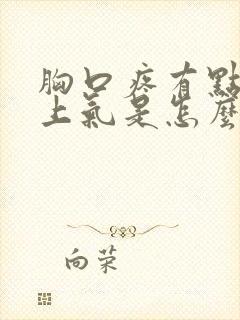 胸口疼有點
上氣是怎麼
向荣